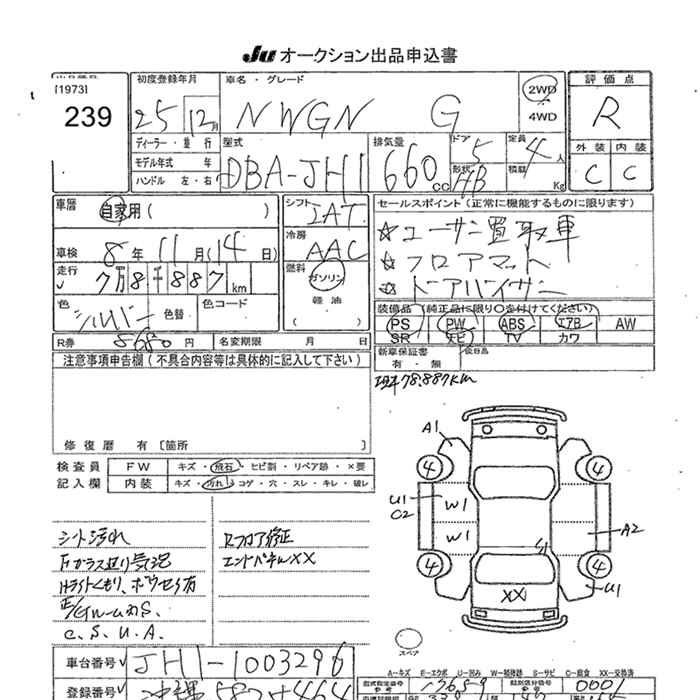 Ju オークション出品申込書
[1973]
239
初度登録年月
25 12月
車名・グレード
NWGN G
2WD
4WD
評価点
R
外装 内装
C C
ディーラー・並行
モデル年式 年
ハンドル 左・右
型式
DBA-JH1
排気量
660cc
ドア
5
形状
HB
定員
4人
積載
Kg
車歴
自家用( )
車検 8年11月(14日)
走行 7万8千887km
色 シルバー 色替
色コード
シフト
IAT
冷房
AAC
燃料
ガソリン
軽油
( )
セールスポイント(正常に機能するものに限ります)
☆ユーザー買取車
☆フロアマット
☆ドアバイザー
装備品(純正品に限り○を付けてください)
PS PW ABS エアB AW
SR ナビ TV カワ
R券 5680円
名変期限 月 日
新車保証書
有・無
後日品
現車78.887km
注意事項申告欄(不具合内容等は具体的に記入して下さい)
修復歴 有 [箇所 ]
検査員
記入欄
FW キズ・飛石・ヒビ割・リペア跡・×要
内装 キズ・汚れ・コゲ・穴・スレ・キレ・破レ
シート汚れ
Fガラス辺り気泡
Hライトくもり、ボウセイ有
C.S.U.A.
Rフロア修正
エンドパネルXX
A1
4
4
U1
C2
W1
W1
A2
4
4
U1
XX
スペア
A-キズ E-エクボ U-凹み W-補修跡 S-サビ C-腐食 XX-交換済
車台番号 JH1-1003296
登録番号
型式指定番号
類別区分番号 0001